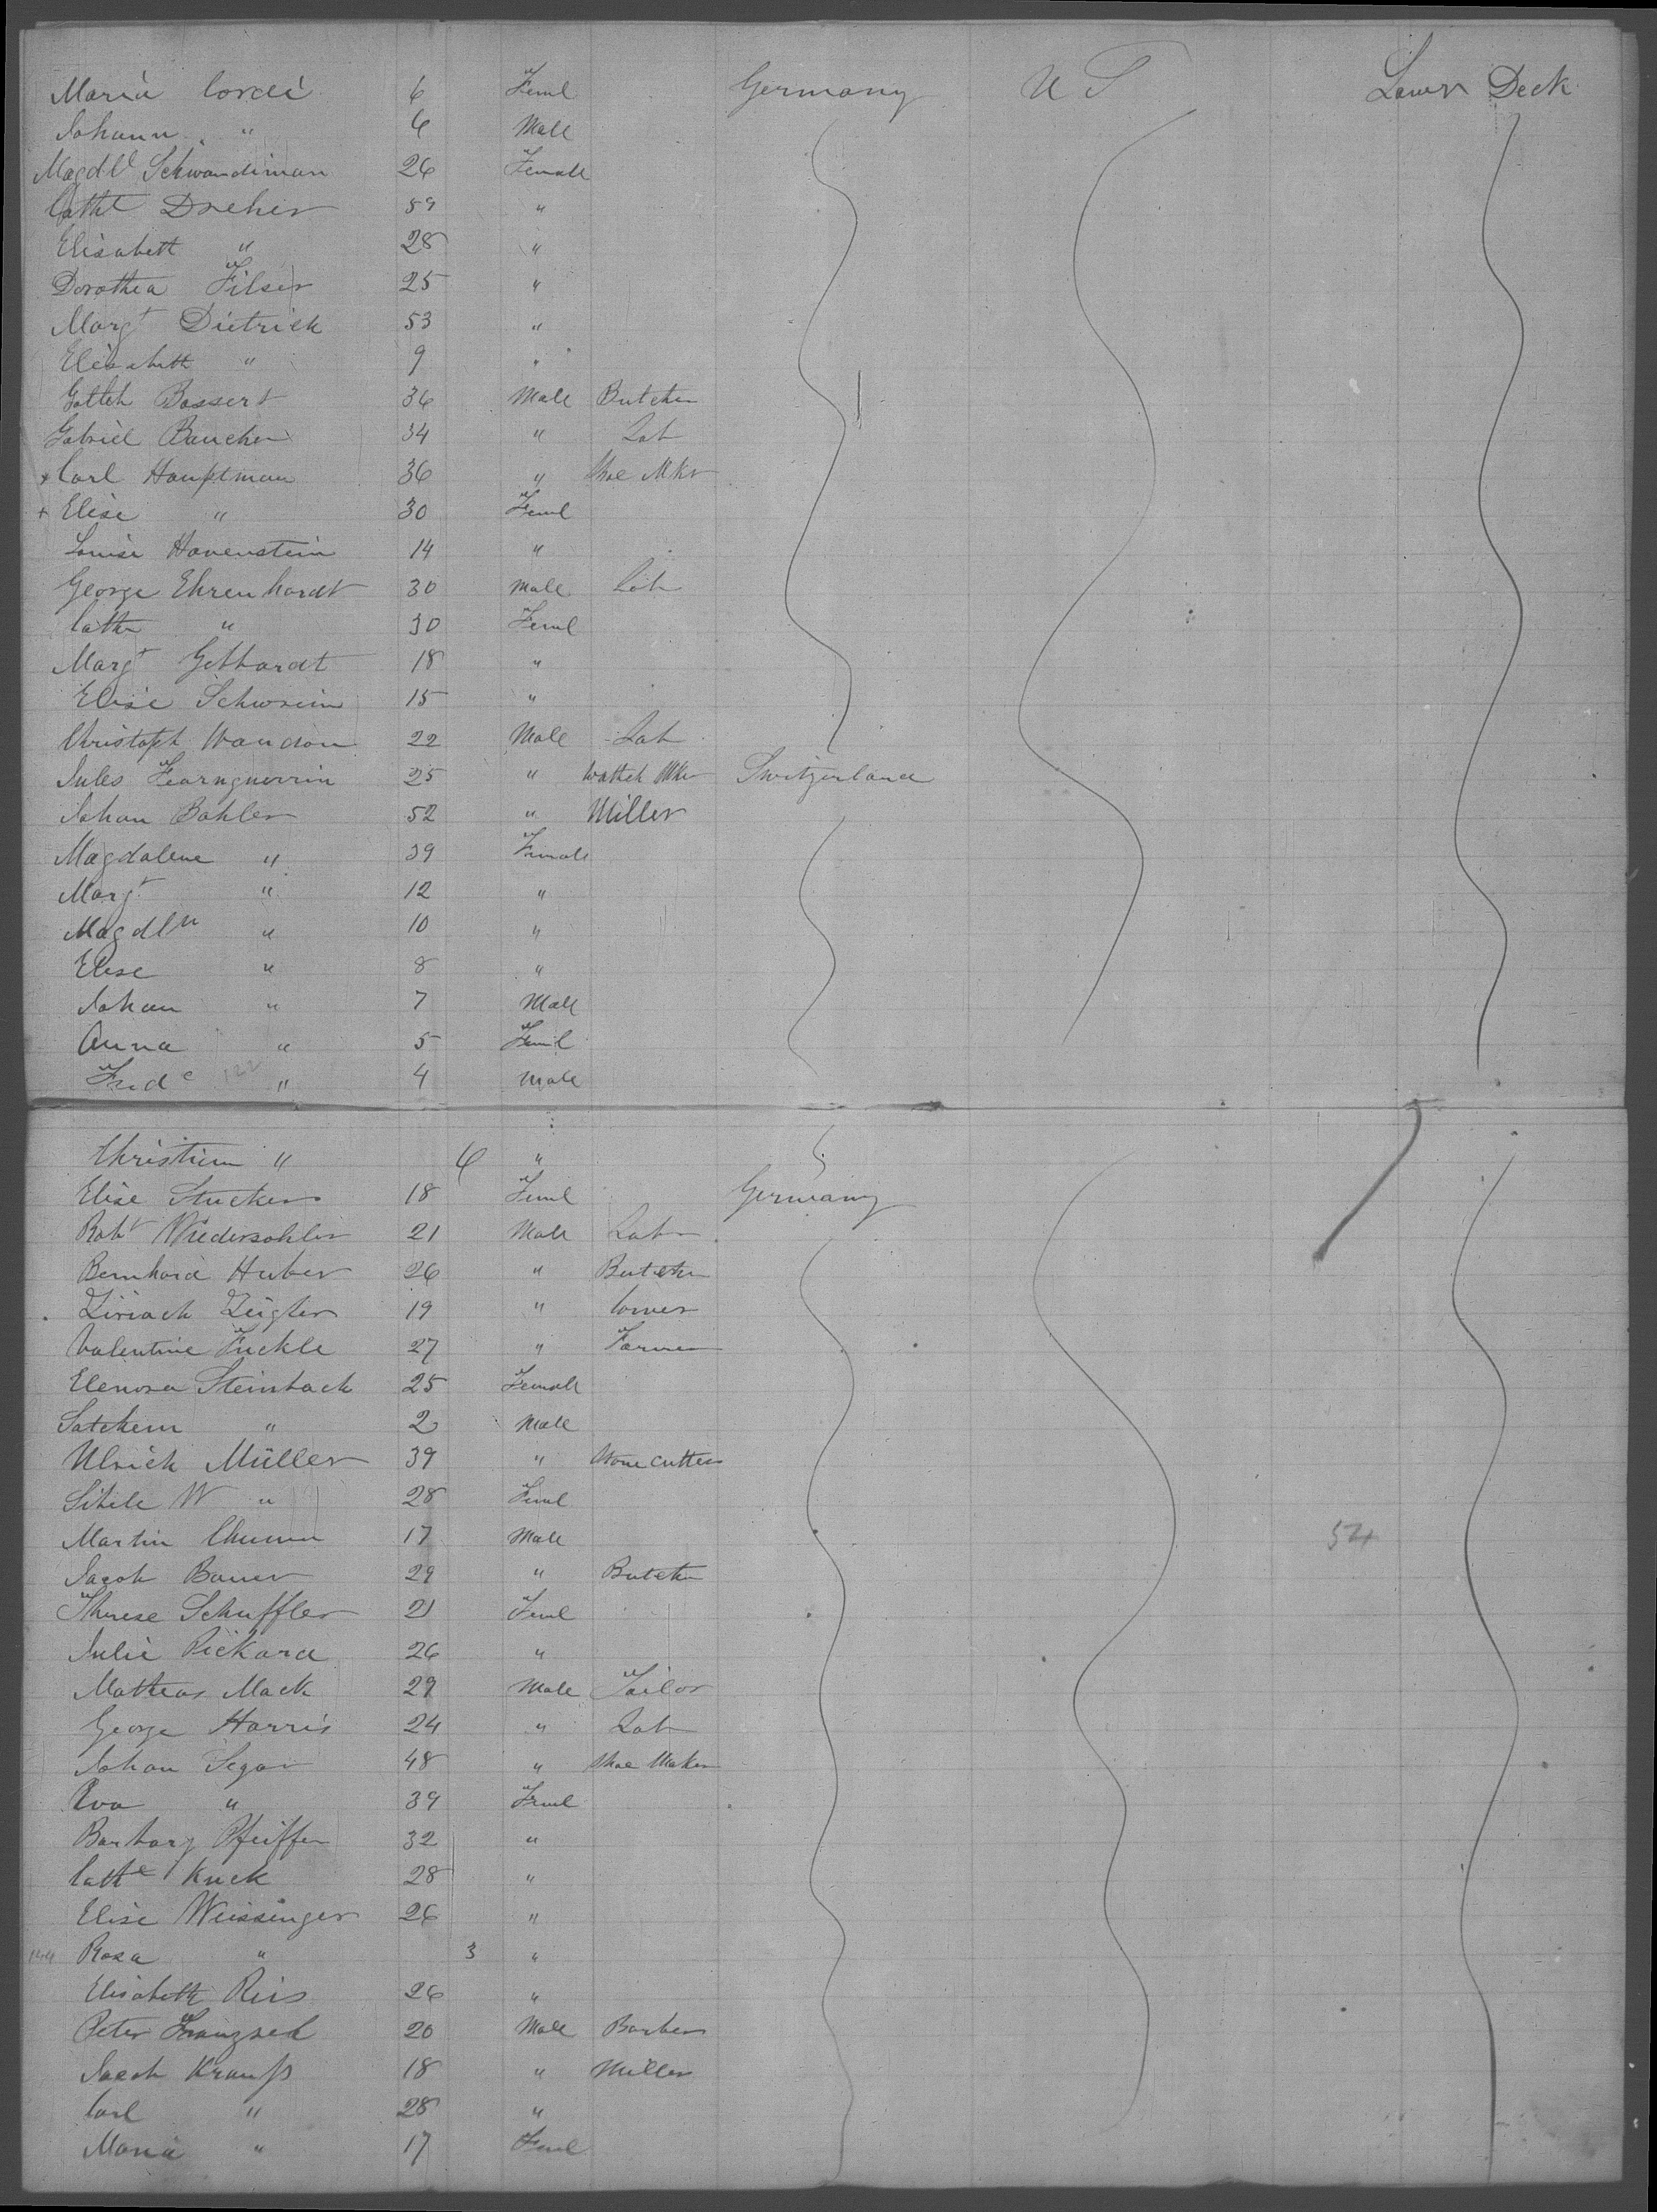 Maria Cordi 6 Feml Germany U S Lower Deck
Johann " 6 Male
Magdl Schwandiman 26 Female
Cath Dreher 59 "
Elisabeth " 28 "
Dorothea Filser 25 "
Margt Dietrick 53 "
Elisabeth " 9 "
Gottch Bossert 36 Male Butcher
Gabriel Baucher 34 " Lab
+ Carl Hauptman 36 " Shoe Mkr
+ Elise " 30 Feml
Louise Havenstein 14 "
George Ehrenhardt 30 male Lab
Cath " 30 Feml
Margt Gebhardt 18 "
Elise Schwrein 15 "
Christoph Wandon 22 Male Lab
Jules 25 " Watch Mkr Switzerland
Johan Bahler 52 " Miller
Magdalene " 39 Female
Margt " 12 "
Magdln " 10 "
Elise " 8 "
Johan " 7 Male
Anna " 5 Feml
Fredc " 4 male
Christian " 6 "
Elise Stucker 18 Feml Germany
Robt Wiedersohler 21 Male Labr
Bernhard Huber 26 " Butcher
Ziriach Zeigler 19 "
Valentine Fuckle 27 " Farmer
Elenora Steinback 25 Female
" 2 Male
Ulrich Müller 39 " Stone cutter
W " 28 Feml
Martin 17 Male 54
Jacob Bauer 29 " Butcher
Therese Schuffler 21 Feml
Julie Pickard 26 "
Mathias Mack 29 Male Tailor
George Harris 24 " Lab
Johan Segar 48 " Shoe Maker
Eva " 39 Feml
Barbary Pfeiffer 32 "
Cathe Kuck 28 "
Elise Weissinger 26 "
144 Rosa " 3 "
Elisabeth Reis 26 "
Peter 20 Male Barber
Jacob Krauss 18 " Miller
Carl " 28 "
Maria " 17 Feml